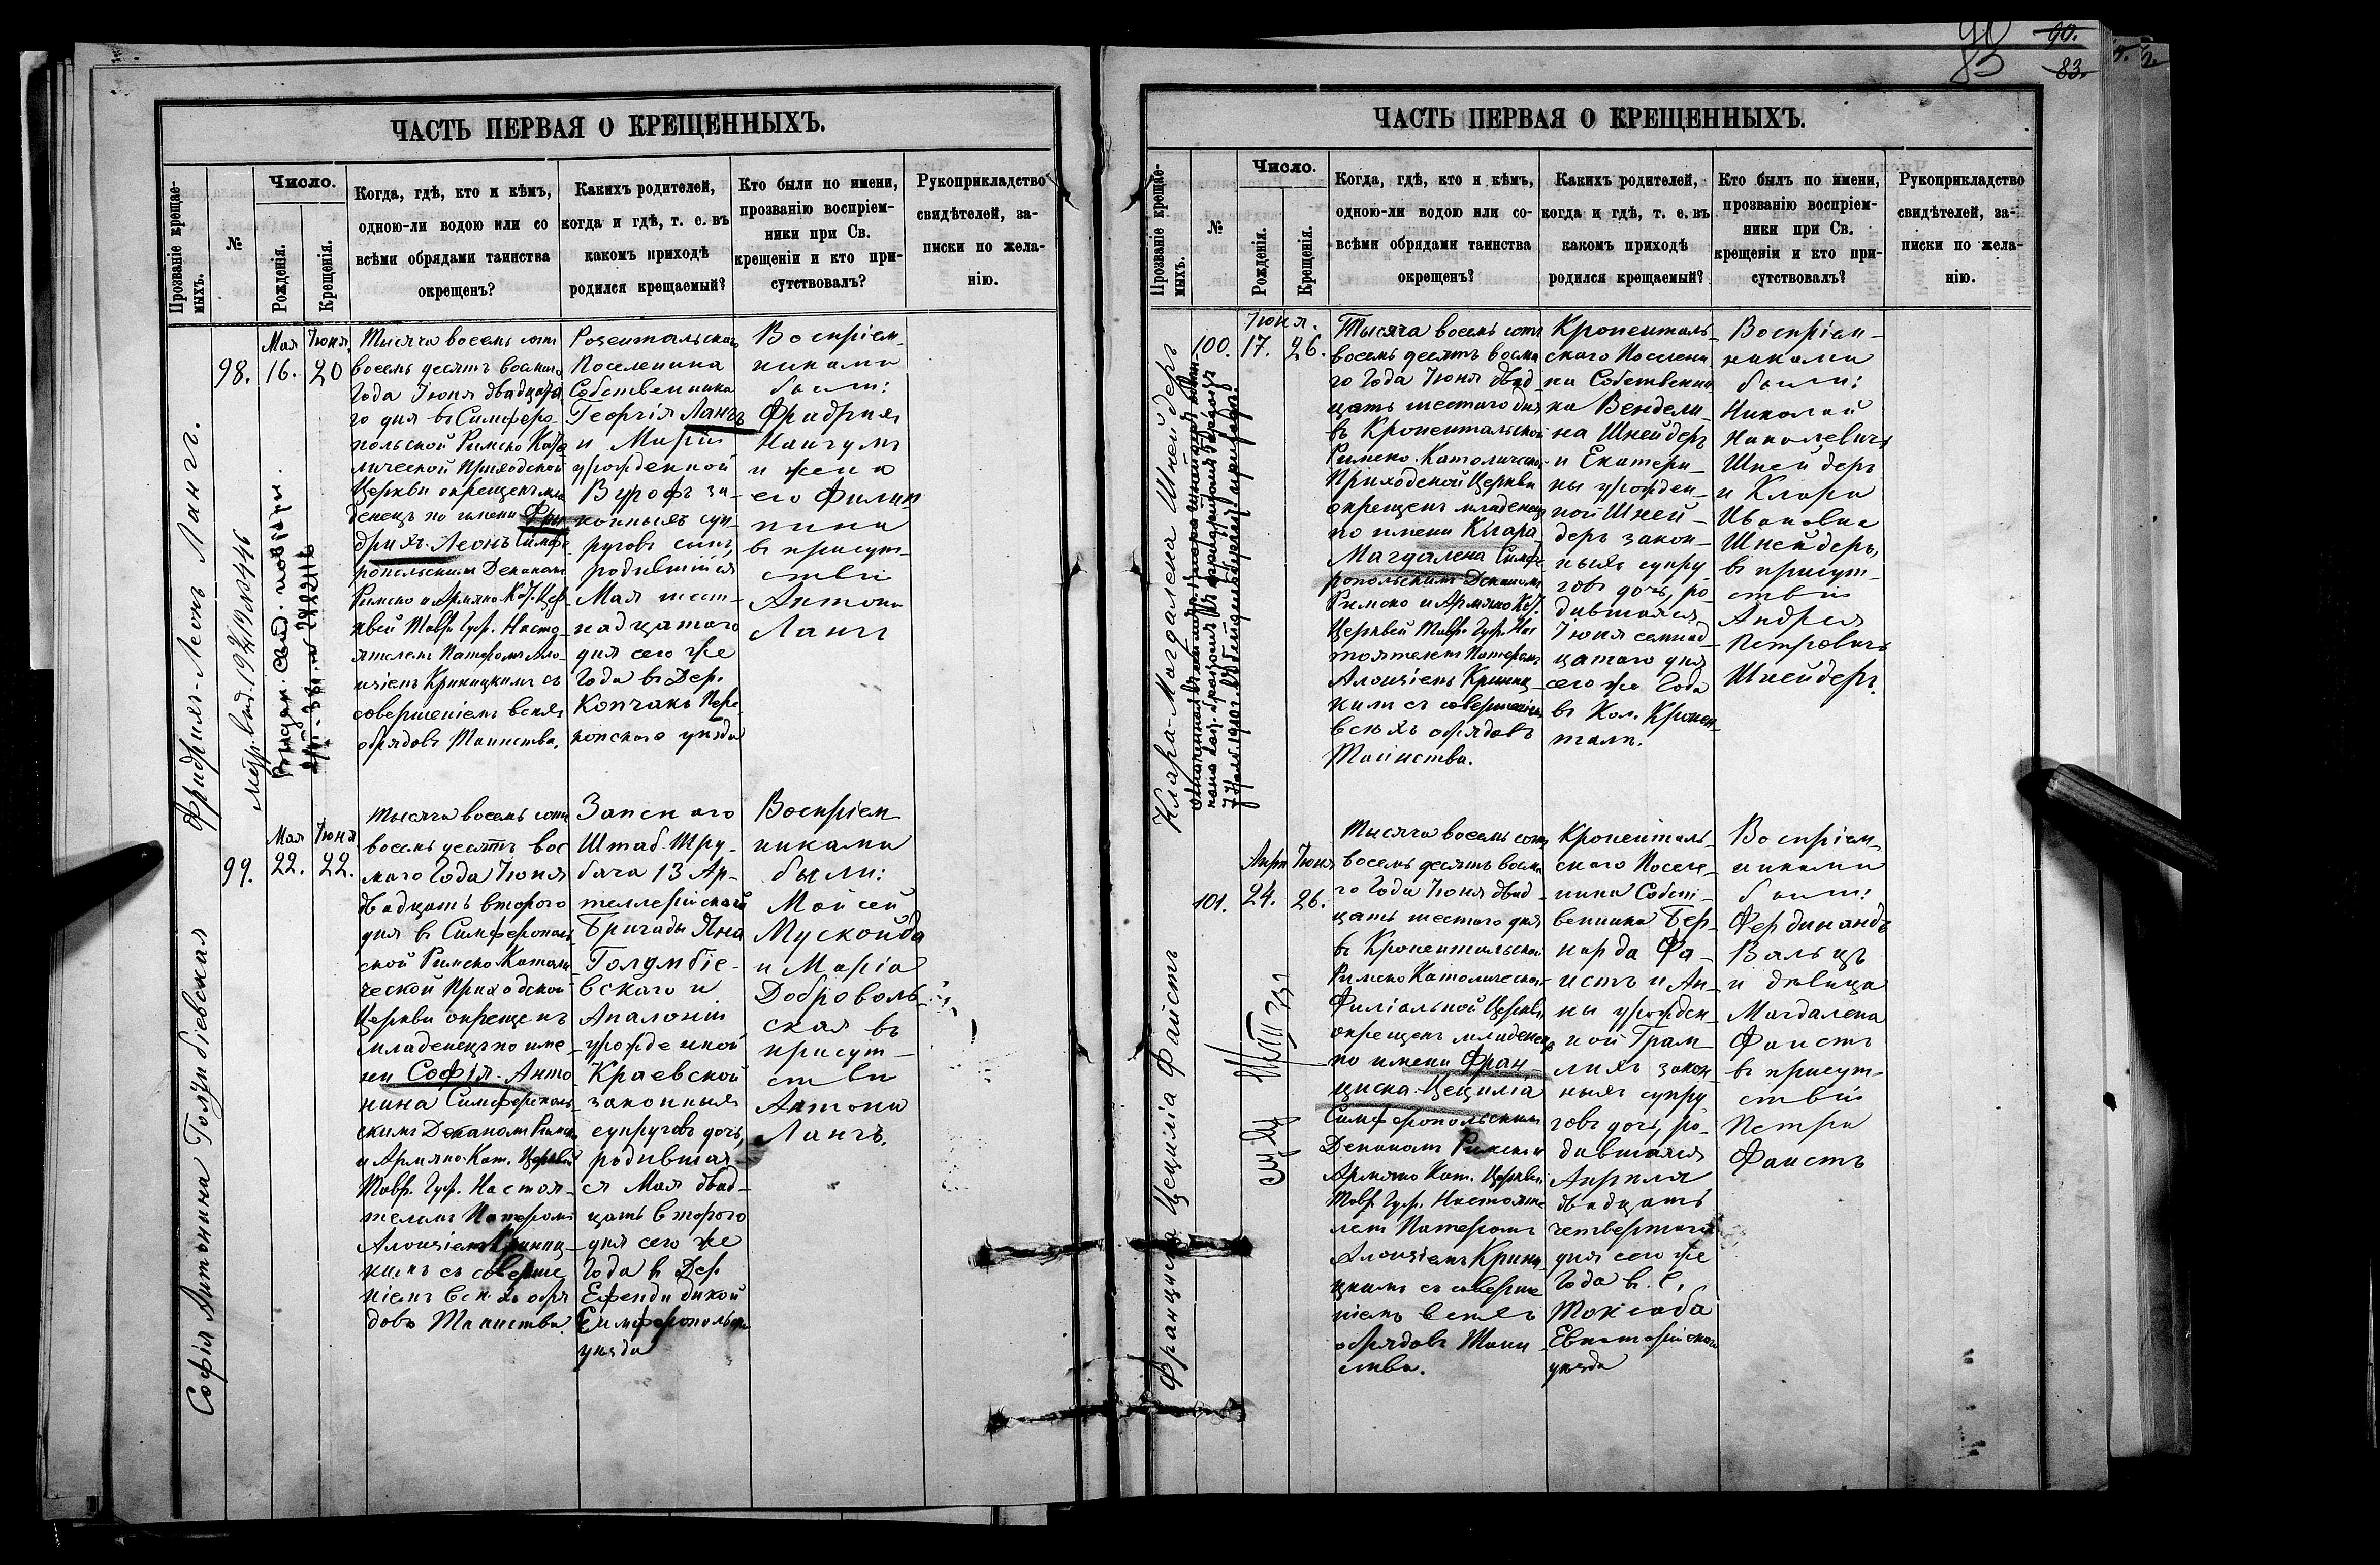 90
83
90.
83.
ЧАСТЬ ПЕРВАЯ О КРЕЩЕННЫХЪ.
Прозваніе крещае-
мыхъ.
№
Число.
Рожденія.
Крещенія.
Когда, гдѣ, кто и кѣмъ,
одною-ли водою или со
всѣми обрядами таинства
окрещенъ?
Какихъ родителей,
когда и гдѣ, т. е. въ
какомъ приходѣ
родился крещаемый?
Кто были по имени,
прозванію воспріем-
ники при Св.
крещеніи и кто при-
сутствовалъ?
Рукоприкладство
свидѣтелей, за-
писки по жела-
нію.
Фридрихъ-Леонъ Лангг.
98.
Мая
16.
Іюня
20
Тысяча восемь сотъ
восемь десятъ восмаго
Года Іюня двадцата
го дня въ Симферо-
польской Римско Като
лической Приходской
Церкви окрещенъ мла
денецъ по имени Фри
дрихъ-Леонъ Симфе
ропольскимъ Деканомъ
Римско и Армяно Кат. Цер
квей Тавр. Губ. Насто-
ятелемъ Патеромъ Ало-
изіемъ Криницкимъ съ
совершеніемъ всѣхъ
обрядовъ Таинства.
Розентальскаго
Поселенина
Собственника
Георгія Лангъ
и Маріи
урожденной
за-
конныхъ суп-
руговъ сынъ,
родившійся
Мая шест-
надцатаго
дня сего же
Года въ Дер.
Копчакъ Пере-
копскаго уѣзда
Воспріем-
никами
были:
Фридрихъ
и жена
его Филип
пина
въ присут-
ствіи
Антона
Лангъ
Софія Антонина Голумбіевская
99.
Мая
22.
Іюня
22.
Тысяча восемь сотъ
восемь десятъ вос
маго Года Іюня
двадцать втораго
дня въ Симферополь
ской Римско Католи
ческой Приходской
Церкви окрещенъ
младенецъ по име-
ни Софія-Анто
нина Симферополь-
скимъ Деканомъ Римско
и Армяно-Кат. Церквей
Тавр. Губ. Настоя-
телемъ Патеромъ
Алоизіемъ Криниц-
кимъ съ соверше
ніемъ всѣхъ обря
довъ Таинства.
Запснаго
Штаб-Тру-
бача 13 Ар-
теллерійской
Бригады Яна
Голумбіе-
вскаго и
Апалоніи
урожденной
Краевской
законныхъ
супруговъ дочь,
родившая-
ся Мая двад-
цать втораго
дня сего же
Года въ Дер.
Ефенди бикой
Симферопольска
уѣзда
Воспріем
никами
были:
Мойсей
Мускойда
и Марія
Доброволь-
ская въ
присут-
ствіи
Антона
Лангъ.
ЧАСТЬ ПЕРВАЯ О КРЕЩЕННЫХЪ.
Прозваніе крещае-
мыхъ.
№
Число.
Рожденія.
Крещенія.
Когда, гдѣ, кто и кѣмъ,
одною-ли водою или со-
всѣми обрядами таинства
окрещенъ?
Какихъ родителей,
когда и гдѣ, т. е. въ
какомъ приходѣ
родился крещаемый?
Кто былъ по имени,
прозванію воспріем-
ники при Св.
крещеніи и кто при-
сутствовалъ?
Рукоприкладство
свидѣтелей, за-
писки по жела-
нію.
Клара-Магдалена Шнейдеръ
100.
Іюня.
17.
26.
Тысяча восемь сотъ
восемь десятъ восма
го Года Іюня двад
цать шестаго дня
въ Кроненталъской
Римско-Католической
Приходской Церкви
окрещенъ младенецъ
по имени Клара
Магдалена Симфе
ропольскимъ Деканомъ
Римско и Армяно Кат.
Церквей Тавр. Губ. Нас
тоятелемъ Патеромъ
Алоизіемъ Криниц-
кимъ съ совершеніемъ
всѣхъ обрядовъ
Таинства.
Кроненталь-
скаго Поселени
на Собственни
ка Вендели-
на Шнейдеръ
и Екатери-
ны урожден-
ной Шней-
деръ закон-
ныхъ супру
говъ дочь, ро-
дившаяся
Іюня семнад
цатаго дня
сего же Года
въ Кол. Кронен
таль.
Воспріем-
никами
были:
Николай
Николевичъ
Шнейдеръ
и Клара
Ивановна
Шнейдеръ,
въ присут-
ствіи
Андрея
Петровичъ
Шнейдеръ.
Франциска Цецилія Фаистъ
101.
Апрѣ
24.
Іюня
26.
Тысяча восемь сотъ
восемь десятъ восма
го Года Іюня двад
цать шестаго дня
въ Кронентальской
Римско Католической
Филіальной Церкви
окрещенъ младенецъ
по имени Фран
циска-Цецилія
Симферопольскимъ
Деканомъ Римско и
Армяно Кат. Церквей
Тавр. Губ. Настояте
лемъ Патеромъ
Алоизіемъ Крини
цкимъ съ соверше
ніемъ всѣхъ
обрядовъ Таин
ства.
Кроненталь-
скаго Поселе-
нина Собст-
венника Бер-
нарда Фа-
истъ и Ан-
ны урожден-
ной Грам-
лихъ закон
ныхъ супру
говъ дочь, ро-
дившаяся
Апрѣля
двадцать
четвертаго
дня сего же
Года въ С.
Токсаба
Евпаторійскаго
уѣзда
Воспріем-
никами
были:
Фердинандъ
Вальцъ
и дѣвица
Магдалена
Фаистъ
въ присут-
ствіи
Петра
Фаистъ